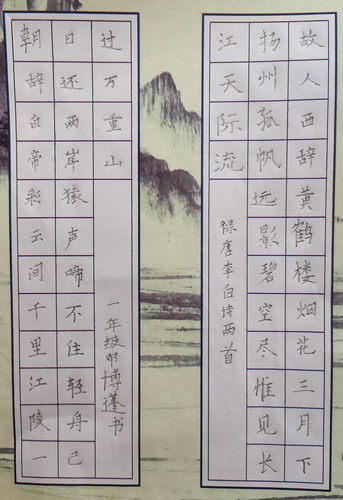 故人西辞黄鹤楼烟花三月下
扬州孤帆远影碧空尽惟见长
江天际流
禄唐李白诗两首
朝辞白帝彩云间千里江陵一
日还两岸猿声啼不住轻舟已
过万重山
一年级博蓬书